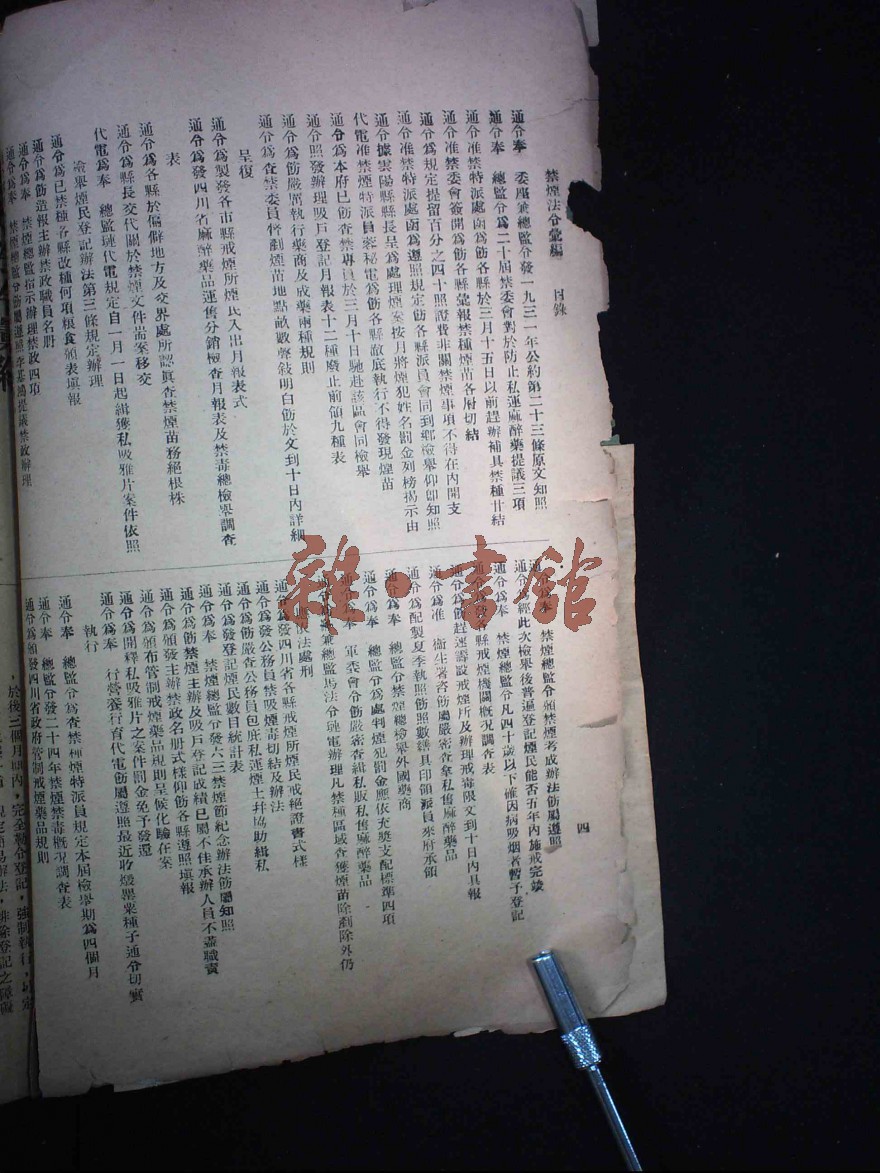 禁煙法令彙編 目錄
四
通令奉 委座兼總監令發一九三一年公約第二十三條原文知照
通令奉 總監令爲二十屆禁委會對於防止私運麻醉藥提議三項
通令准禁特派處函爲飭各縣於三月十五日以前趕辦補具禁種甘結
通令准禁委會簽開爲飭各縣彙報禁種煙苗各府切結
通令爲規定提留百分之四十照證費非關禁煙事項不得在內開支
通令准禁特派處函爲遵照規定飭各縣派員會同到鄉檢舉仰卽知照
通令據雲陽縣縣長呈爲處理煙案按月將煙犯姓名罰金列榜揭示由
代電准禁煙特派員蓉秘電爲飭各縣澈底執行不得發現煙苗
通令爲本府已飭查禁專員於三月十日馳赴該區會同檢舉
通令照發辦理吸戶登記月報表十二種廢止前頒九種表
通令爲飭嚴厲執行藥商及成藥兩種規則
通令爲查禁委員督剷煙苗地點畝數聲敍明白飭於文到十日內詳細
呈復
通令爲製發各市縣戒煙所煙民入出月報表式
通令爲發四川省麻醉藥品運售分銷檢查月報表及禁毒總檢舉調查
表
通令爲各縣於偏僻地方及交界處所認眞查禁煙苗務絕根株
通令爲縣長交代關於禁煙文件耑案移交
代電爲奉 總監璉代電規定自一月一日起緝獲私吸雅片案件依照
檢舉煙民登記辦法第三條規定辦理
通令爲已禁種各縣改種何項糧食頒表填報
通令爲飭造報主辦禁政職員名册
通令爲奉 禁煙總監指示辦理禁政四項
通令爲奉 禁煙總監令飭屬遵照李基鴻提議禁政辦理
通令爲奉 禁煙總監令頒禁煙考成辦法飭屬遵照
通令經此次檢舉後普遍登記煙民能否五年內施戒完竣
通令爲奉 禁煙總監令凡四十歲以下確因病吸烟者暫予登記
通令爲發各縣戒煙機關概況調查表
通令爲飭趕速籌設戒煙所及辦理戒毒限文到十日內具報
通令爲准 衞生署咨飭屬嚴密查拿私售麻醉藥品
通令爲配製夏季執照飭照數繕具印領派員來府承領
通令爲奉 總監令禁煙總檢舉外國藥商
通令爲奉 總監令爲處判煙犯罰金應依充獎支配標準四項
通令爲奉 軍委會令飭嚴密查緝私販私售麻醉藥品
兼總監馬法令璉電辦理凡禁種區域查獲煙苗除剷除外仍
依法處刑
通令爲發四川省各縣戒煙所煙民戒絕證書式樣
通令爲發公務員禁吸煙毒切結及辦法
通令爲飭嚴查公務員包庇私運煙土并協助緝私
通令爲發登記煙民數目統計表
通令爲奉 禁煙總監令發六三禁煙節紀念辦法飭屬知照
通令爲飭禁煙主辦及吸戶登記成績已屬不佳承辦人員不盡職責
通令爲頒發主辦禁政名册式樣仰飭各縣遵照填報
通令爲頒布管制戒煙藥品規則呈候化驗在案
通令爲開釋私吸雅片之案件罰金免予發還
通令爲奉 行營養行育代電飭屬遵照最近收燬罌粟種子通令切實
執行
通令奉 總監令爲查禁種煙特派員規定本屆檢舉期爲四個月
通令奉 總監令發二十四年禁煙禁毒概况調查表
通令爲頒發四川省政府管制戒煙藥品規則
，於後三個月期內，完全勒令登記，強制執行，